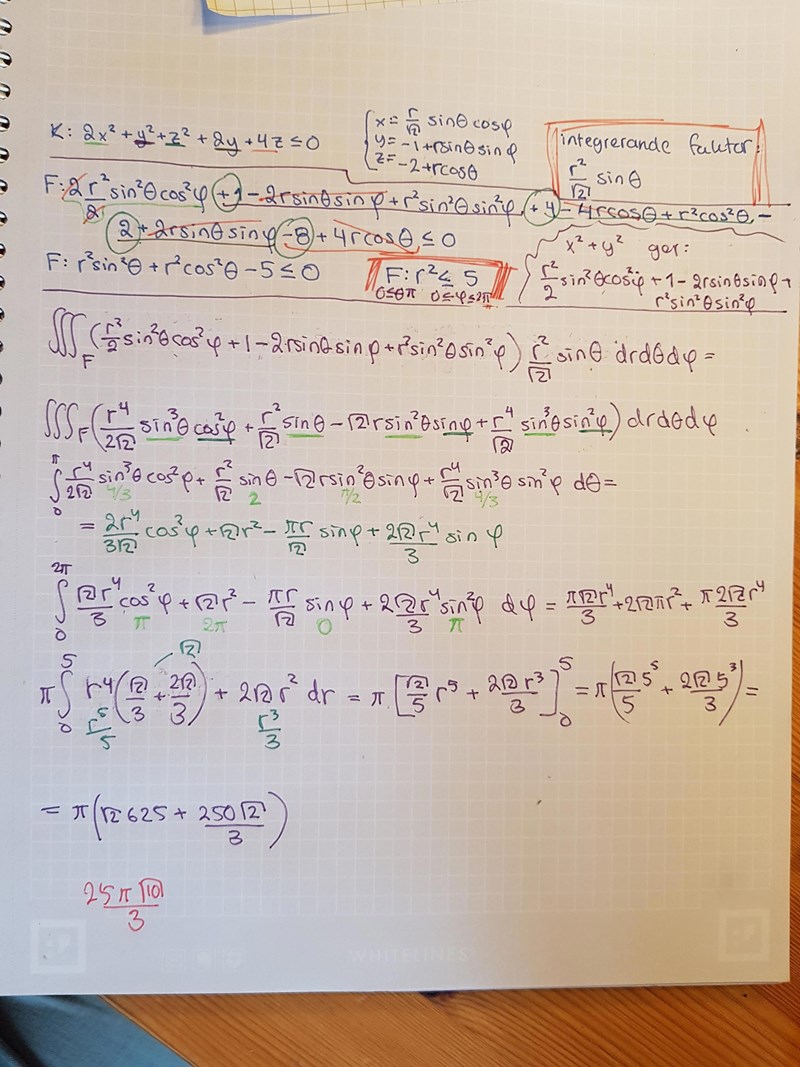 K: 2x² + y² + z² + 2y + 4z ≤ 0
{ x = r/√2 sinθ cosφ
y = -1 + r sinθ sinφ
z = -2 + r cosθ
integrerande faktor:
r²/√2 sinθ
F: 2 r²/2 sin²θ cos²φ + 1 - 2r sinθ sinφ + r² sin²θ sin²φ + 4 - 4r cosθ + r² cos²θ -
2 + 2r sinθ sinφ - 8 + 4r cosθ ≤ 0
F: r² sin²θ + r² cos²θ - 5 ≤ 0
F: r² ≤ 5
0≤θπ 0≤φ≤2π
x² + y² ger:
r²/2 sin²θ cos²φ + 1 - 2r sinθ sinφ +
r² sin²θ sin²φ
∭_F (r²/2 sin²θ cos²φ + 1 - 2r sinθ sinφ + r² sin²θ sin²φ) r²/√2 sinθ dr dθ dφ =
∭_F (r⁴/2√2 sin³θ cos²φ + r²/√2 sinθ - √2 r sin²θ sinφ + r⁴/√2 sin³θ sin²φ) dr dθ dφ
∫₀^π r⁴/2√2 sin³θ cos²φ + r²/√2 sinθ - √2 r sin²θ sinφ + r⁴/√2 sin³θ sin²φ dθ =
4/3 2 π/2 4/3
= 2r⁴/3√2 cos²φ + √2 r² - πr/√2 sinφ + 2√2 r⁴/3 sin φ
∫₀^2π √2 r⁴/3 cos²φ + √2 r² - πr/√2 sinφ + 2√2 r⁴/3 sin²φ dφ = π√2 r⁴/3 + 2√2 π r² + π 2√2 r⁴/3
π 2π 0 π
√2
π ∫₀^5 r⁴ (√2/3 + 2√2/3) + 2√2 r² dr = π [√2/5 r⁵ + 2√2 r³/3]₀^5 = π (√2 5⁵/5 + 2√2 5³/3) =
r⁵/5 r³/3
= π (√2 625 + 250√2/3)
25π√10/3
WHITELINES